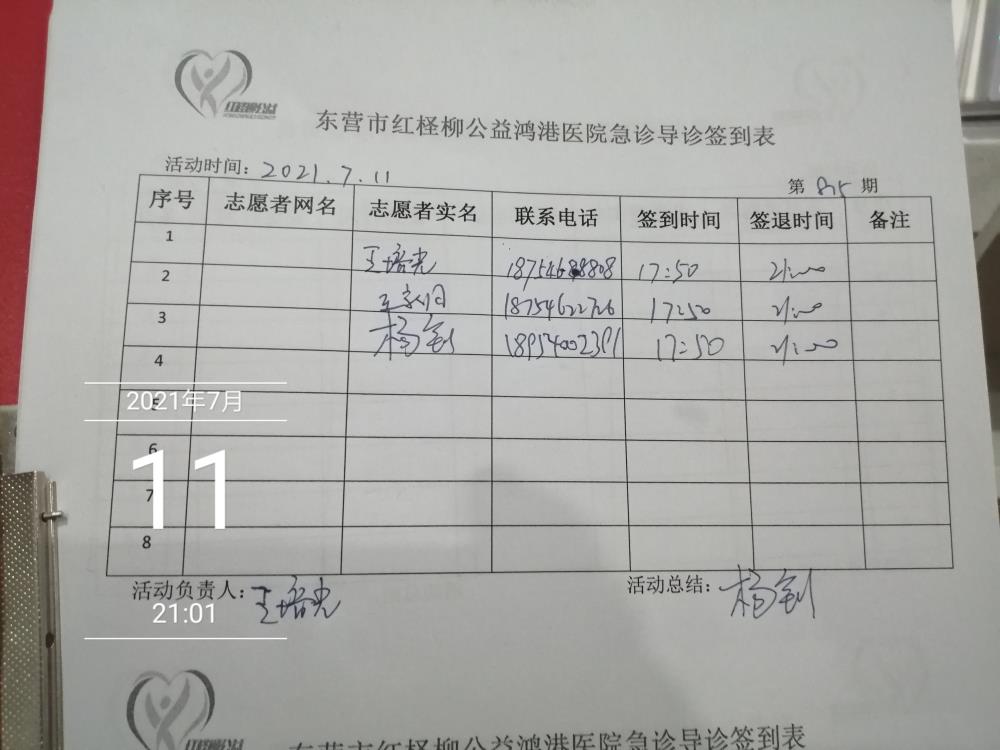 红柽柳公益
东营市红柽柳公益鸿港医院急诊导诊签到表
活动时间：2021.7.11
第 815 期
序号 志愿者网名 志愿者实名 联系电话 签到时间 签退时间 备注
1 王培光 17:50 21:00
2 18754622726 17:50 21:00
3 杨钊 17:50 21:00
4
5
6
7
8
活动负责人：王培光
活动总结：杨钊
2021年7月
11
21:01
东营市红柽柳公益鸿港医院急诊导诊签到表